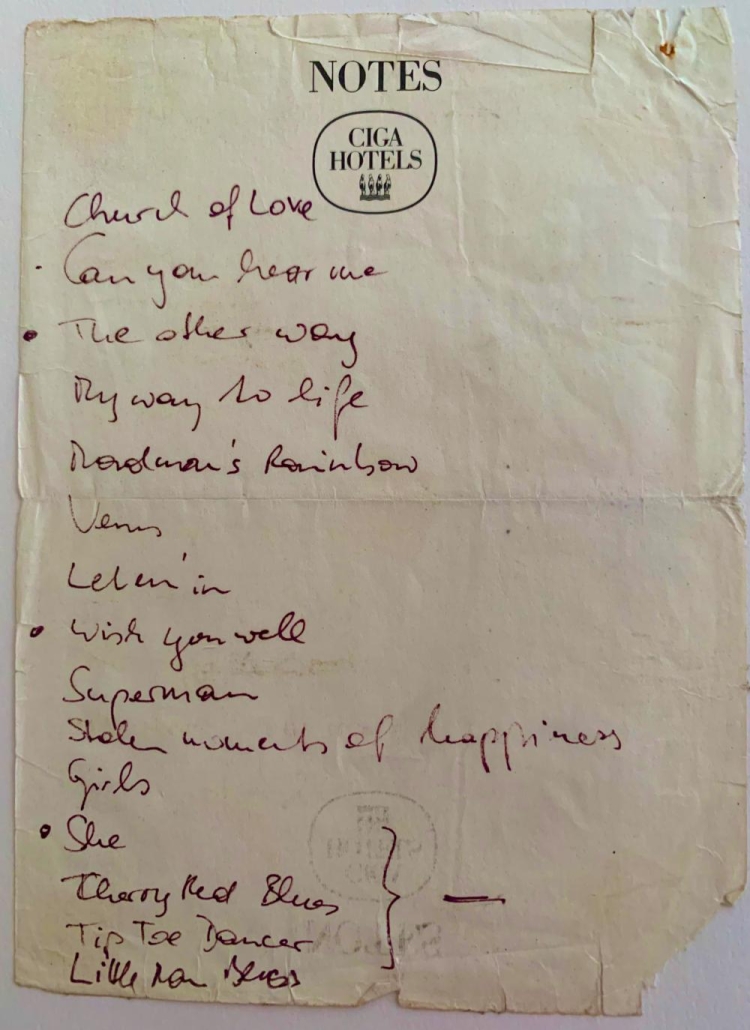 NOTES
CIGA
HOTELS
Church of Love
· Can you hear me
• The other way
My way to life
Madman's Rainbow
Venus
Let em' in
• Wish you well
Superman
Stolen moments of happiness
Girls
• She
Cherry Red Blues
Tip Toe Dancer
Little Man Blues